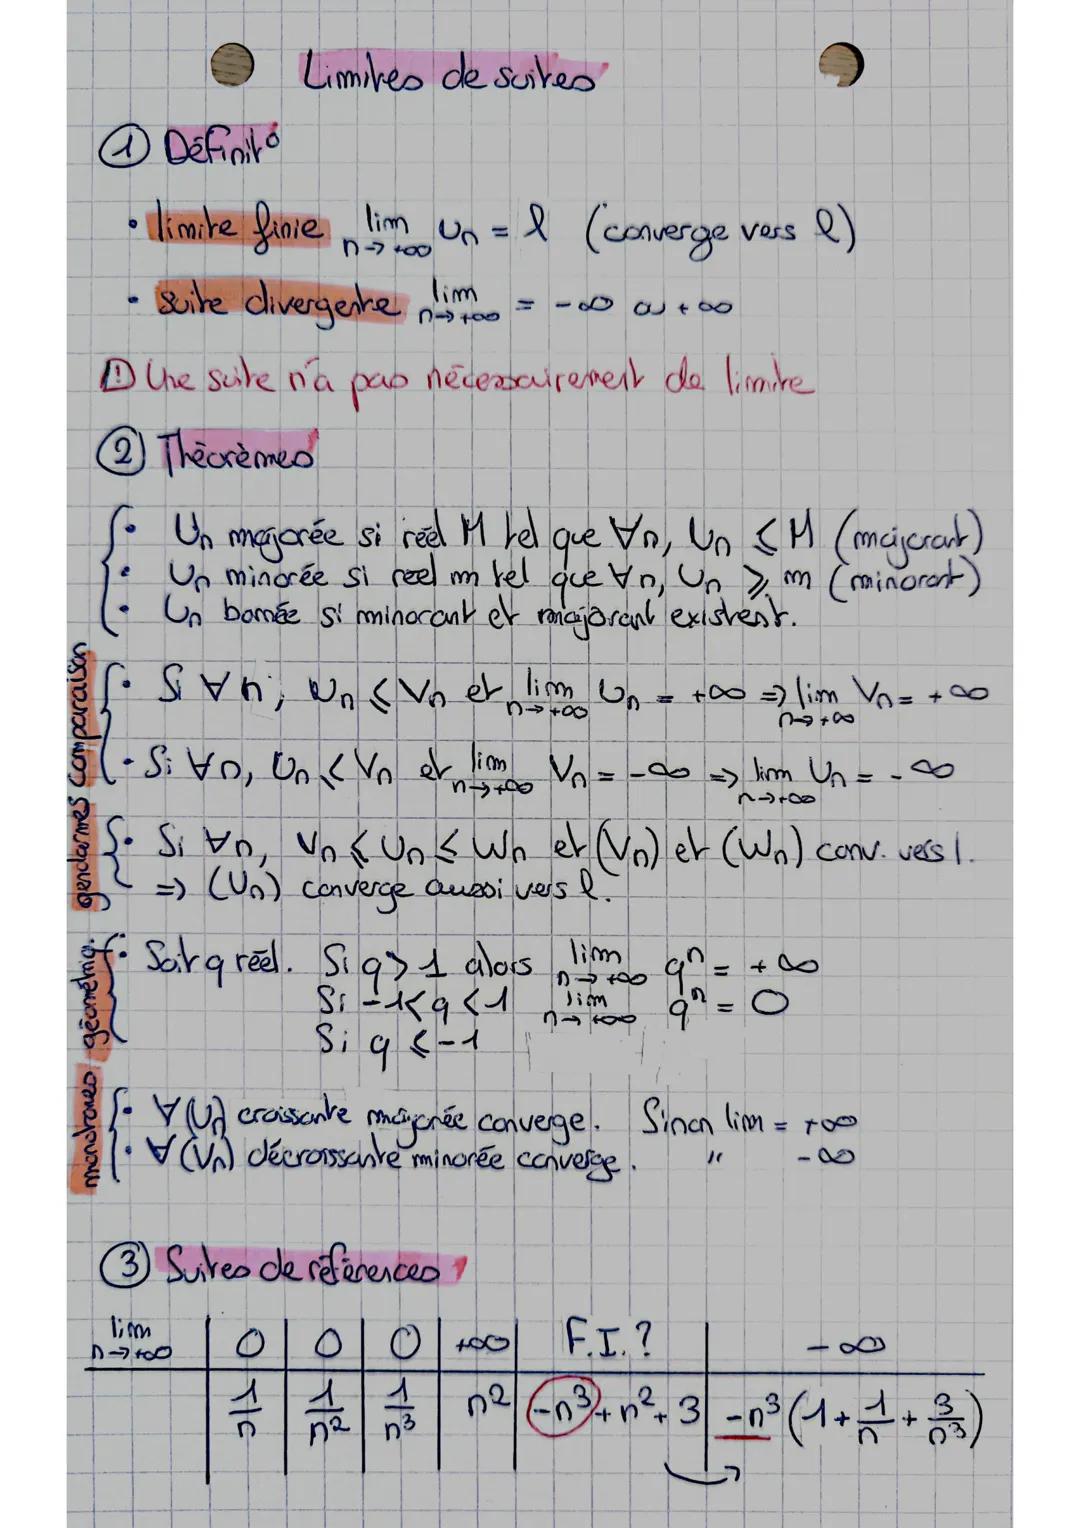 Limites de suites
① Définit°
• limite finie lim n→+∞ Un = l (converge vers l)
• suite divergente lim n→+∞ = -∞ ou +∞
⚠ Une suite n'a pas nécessairement de limite
② Théorèmes
• Un majorée si réel M tel que ∀n, Un ⩽ M (majorant)
• Un minorée si reel m tel que ∀n, Un ⩾ m (minorant)
• Un bornée si minorant et majorant existent.
comparaison
• Si ∀n, Un ⩽ Vn et lim n→+∞ Un = +∞ => lim n→+∞ Vn = +∞
• Si ∀n, Un ⩽ Vn et lim n→+∞ Vn = -∞ => lim n→+∞ Un = -∞
gendarmes
• Si ∀n, Vn ⩽ Un ⩽ Wn et (Vn) et (Wn) conv. vers l.
=> (Un) converge aussi vers l.
géométriq.
• Soit q réel. Si q > 1 alors lim n→+∞ qⁿ = +∞
Si -1 < q < 1 lim n→+∞ qⁿ = 0
Si q ⩽ -1
monotones
• ∀(Un) croissante majorée converge. Sinon lim = +∞
• ∀(Vn) décroissante minorée converge. " -∞
③ Suites de références
lim n→+∞ | 0 | 0 | 0 | +∞ | F.I.? | -∞
1/n | 1/n² | 1/n³ | n² | -n³ + n² + 3 | -n³(1 + 1/n + 3/n³)